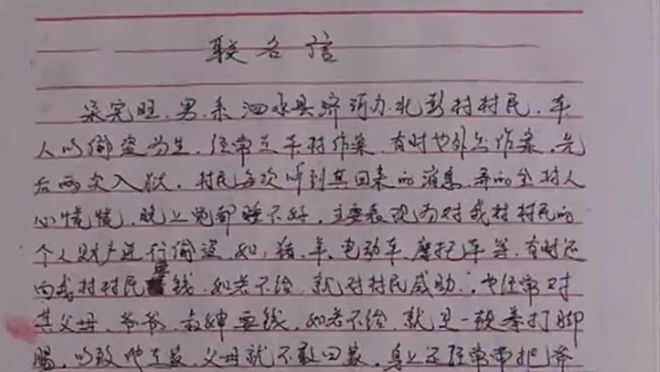 联名信
宗完旺，男，系泗水县济河办北彭村村民，本
人以偷盗为生，经常在本村作案，有时也外出作案，先
后两次入狱，村民每次听到其回来的消息，弄的全村人
心慌慌，晚上觉都睡不好，主要表现为对我村村民的
个人财产进行偷盗，如，猪、羊、电动车、摩托车等，有时还
向我村村民要钱，如若不给，就对村民威胁，也经常对
其父母、爷爷、叔婶要钱，如若不给，就是一顿拳打脚
踢，以致他在家，父母就不敢回家，身上还经常带把斧